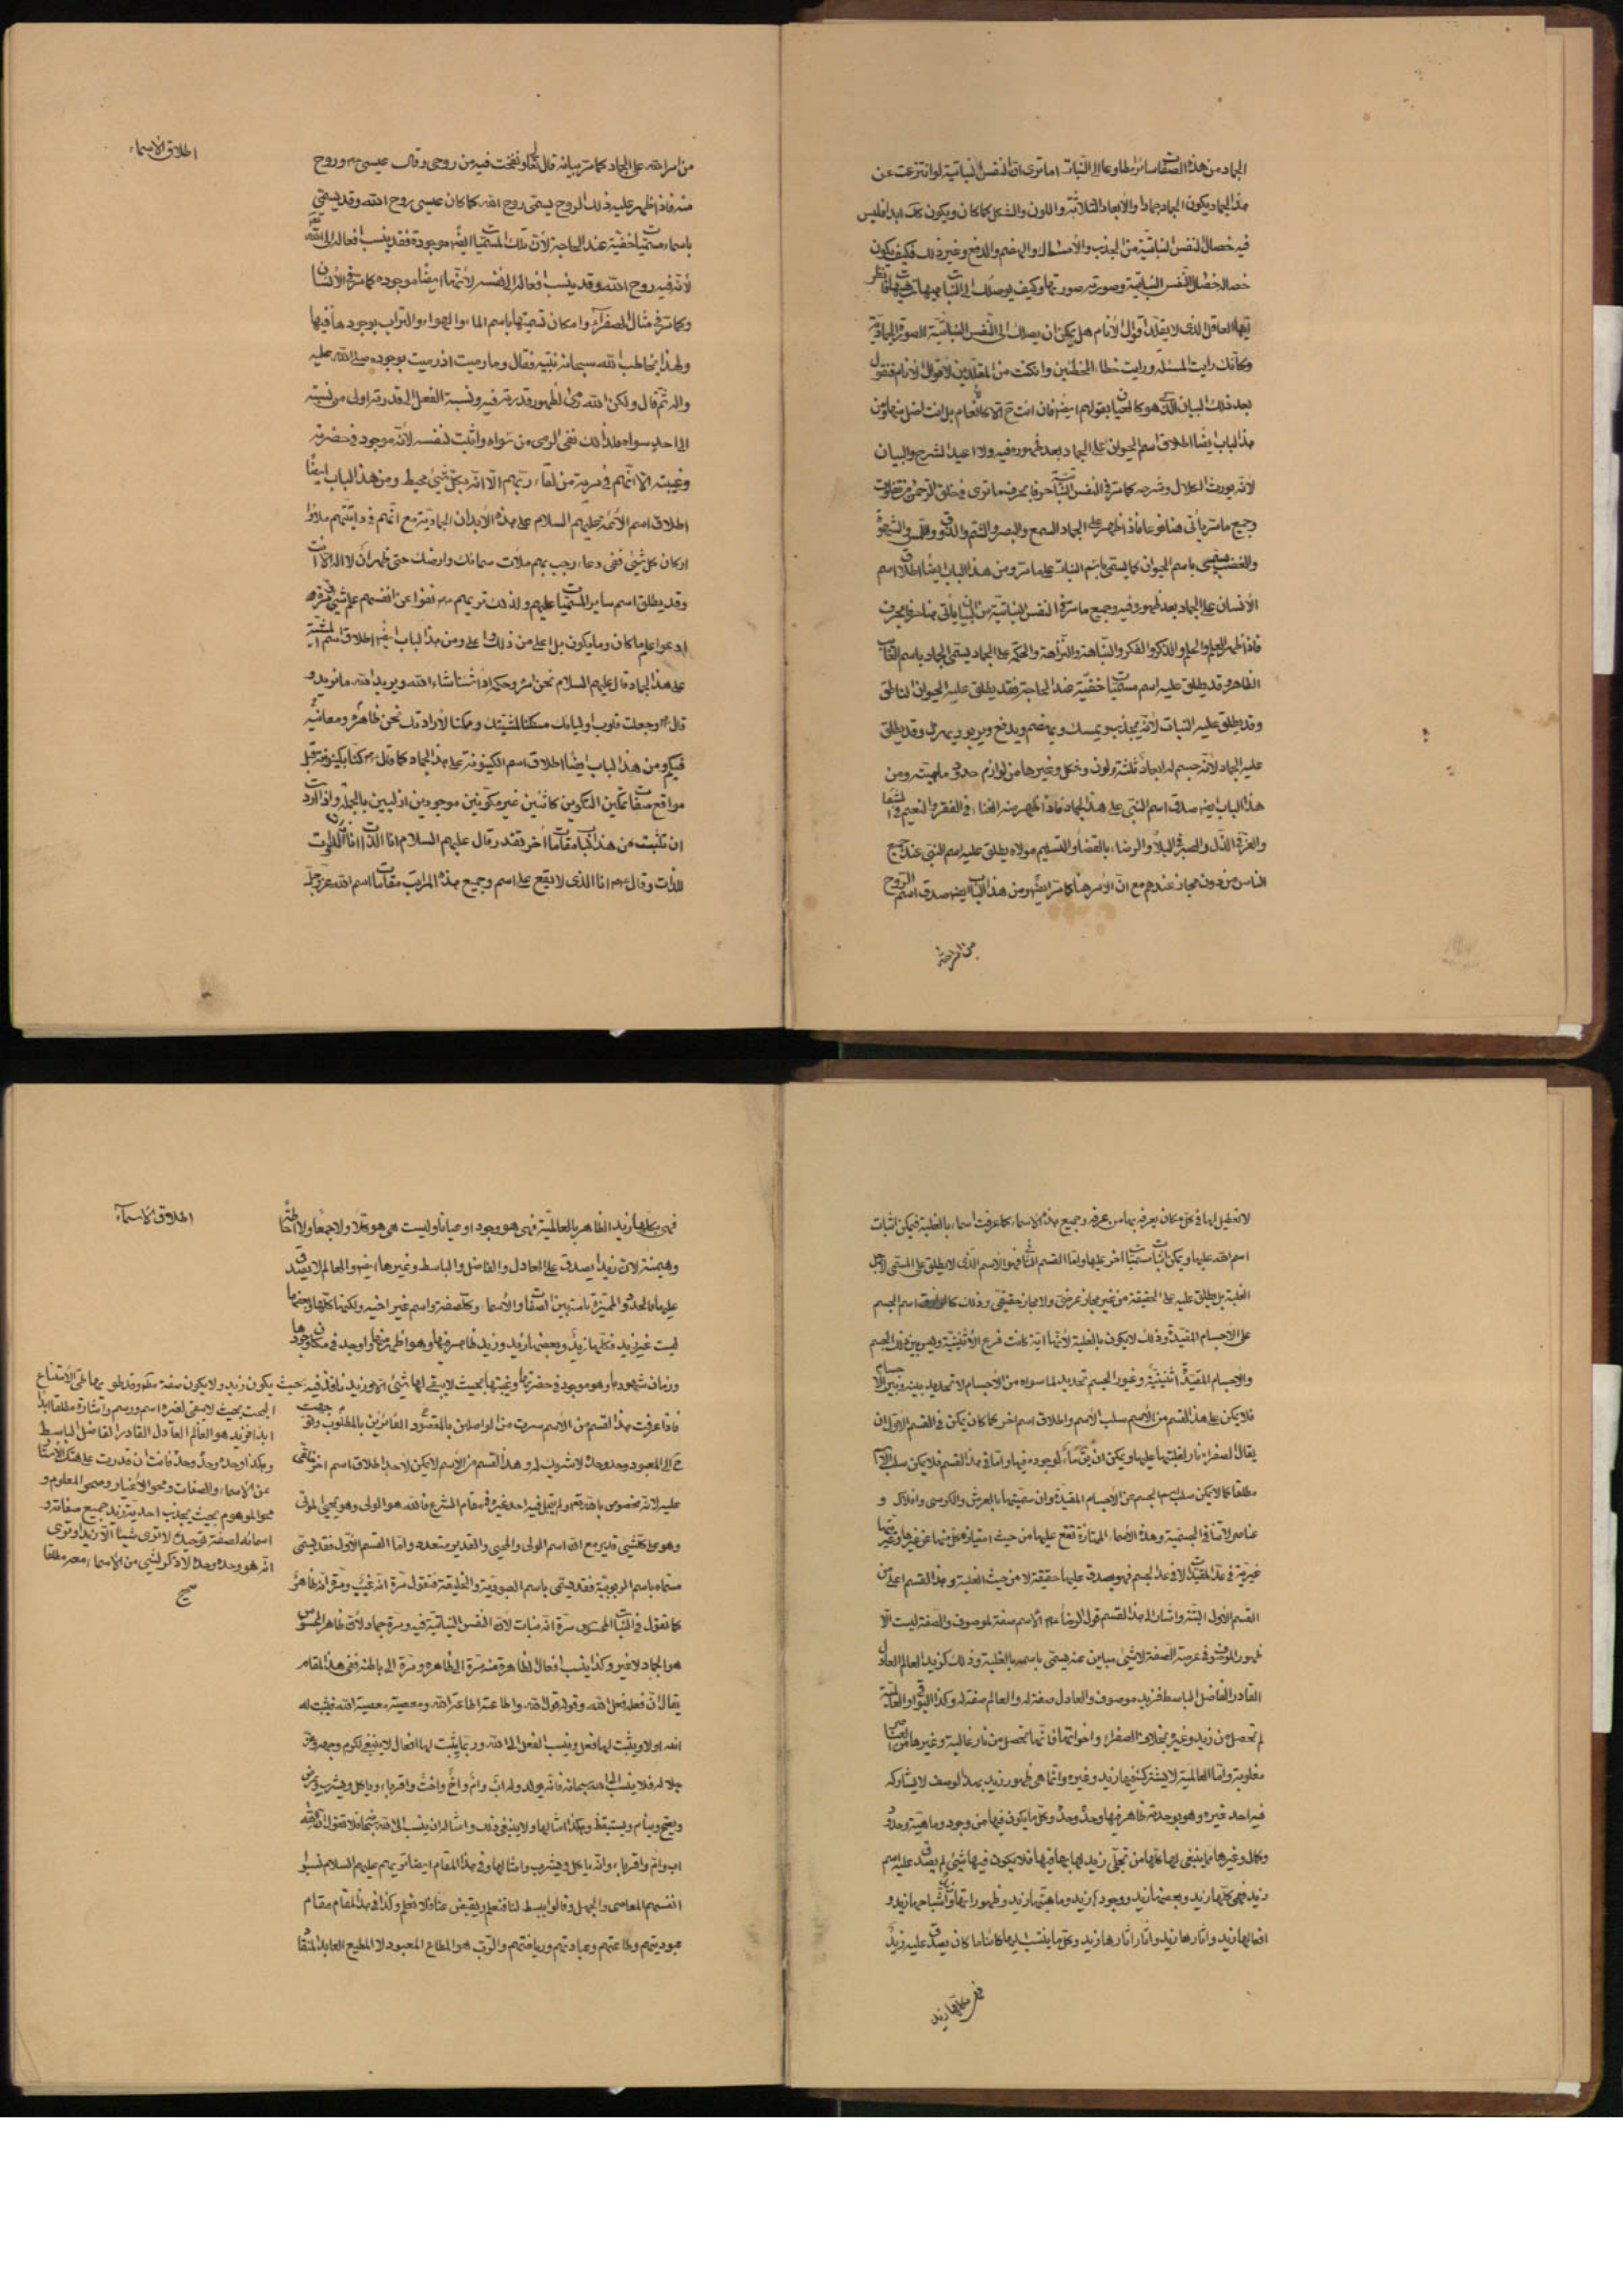 الجماد من هذه الصفات سائر مطاوعا الى النبات اما ترى ان النفس النباتية لو انتزعت عن
هذا الجماد يكون الجماد جمادا والابعاد الثلاثة واللون والشكل كما كان ويكون كك ابدا فليس
فيه خصال النفس النباتية من الجذب والامساك والهضم والدفع وغير ذلك فكيف يكون
خصاله خصال النفس النباتية وصورته صورتها وكيف يوصلك الى النبات هيهات هيهات فانظر
ايها العاقل الذى لا يقلد اقوال الانام هل يمكن ان يصلك الى النفس النباتية الصورة الجمادية
وكانك رايت المسئلة ورايت خطاء المخطئين وان كنت من المقلدين لاقوال الانام فنقول
بعد ذلك البيان الذى هو كالعيان بقولهم ايضا فان انت ح الا كالانعام بل انت اضل منها ومن
هذا الباب ايضا اطلاق اسم الحيوان على الجماد بعد ظهوره فيه ولا اعيد الشرح والبيان
لانه يورث الملال وشرحه كما مر فى النفس النباتية حرفا بحرف ما ترى فى خلق الرحمن من تفاوت
وجميع ما مر يأتى هنا فاذا ظهر على الجماد السمع والبصر والشم والذوق واللمس والشهوة
والغضب يسمى باسم الحيوان كما يسمى باسم النبات على ما مر ومن هذا الباب ايضا اطلاق اسم
الانسان على الجماد بعد ظهوره فيه وجميع ما مر فى النفس النباتية من البيان يأتى هنا حرفا بحرف
فاذا ظهر العلم والحلم والذكر والفكر والنباهة والنزاهة والحكمة على الجماد يسمى الجماد باسم الغالب
الظاهر وقد يطلق عليه اسم مسميات خفية عند الحاجة فقد يطلق عليه الحيوان الناطق
وقد يطلق عليه النبات لانه يجذب ويمسك ويهضم ويدفع ويربو ويهزل وقد يطلق
عليه الجماد لانه جسم له ابعاد ثلثة ولون وشكل وغيرها من لوازم حدود ماهيته ومن
هذا الباب ايضا صدق اسم النبى على هذا الجماد فاذا ظهر منه الغناء فى الفقر والنعيم فى الشقا
والعز فى الذل والصبر فى البلاء والرضاء بالقضاء والتسليم مولاه يطلق عليه اسم النبى عند جميع
الناس من دون مجاز عندهم مع ان الامر هنا كما مر ايضا ومن هذا الباب ايضا صدق اسم الروح
من امر الله
اطلاق الاسماء
من امر الله على الجماد كما مر بيانه قال تعالى ونفخت فيه من روحى وقال عيسى وروح
منه فاذا ظهر عليه ذلك الروح يسمى روح الله كما كان عيسى روح الله وقد يسمى
باسماء مسميات خفية عند الحاجة لان تلك المسميات ايضا موجودة فقد ينسب افعاله الى الله
لانه فيه روح الله وقد ينسب افعاله الى نفسه لانها ايضا موجوده كما مر فى الانسان
وكما مر فى مثال الصفراء وامكان تسميتها باسم الماء والهواء والتراب بوجودها فيها
ولهذا خاطب الله سبحانه نبيه فقال وما رميت اذ رميت بوجوده صلى الله عليه
واله ثم قال ولكن الله رمى لظهور قدرته فيه ونسبة الفعل الى قدرته اولى من نسبته
الى احد سواه فلذلك نفى الرمى من سواه واثبت لنفسه لانه موجود فى حضرته
وغيبته الا انهم فى مرية من لقاء ربهم الا انه بكل شىء محيط ومن هذا الباب ايضا
اطلاق اسم الائمة عليهم السلام على هذه الابدان الجمادية مع انهم فى ذاتيتهم ملأوا
اركان كل شىء ففى دعاء رجب بهم ملأت سمائك وارضك حتى ظهر ان لا اله الا انت
وقد يطلق اسم ساير المسميات عليهم ولذلك تريهم نفوا عن انفسهم علم شىء ومرة
ادعوا علم ما كان وما يكون بل اعلى من ذلك واعلى ومن هذا الباب ايضا اطلاق اسم المشية
على هذا الجماد قال عليهم السلام نحن امره وحكمه اذا شئنا شاء الله ويريد الله ما نريد و
قال وجعلت قلوب اوليائك مسكنا لمشيتك ومكمنا لارادتك نحن ظاهره ومعانيه
فيكم ومن هذا الباب ايضا اطلاق اسم الكينونة على هذا الجماد كما قال كنا بكينونته قبل
مواقع صفات تمكين التكوين كائنين غير مكونين موجودين ازليين بالجملة واذا اردت
ان تثبت من هذا الباب مقامات اخر تقدر قال عليهم السلام انا الذات انا ذات الذوات
للذات وقال انا الذى لا يقع على اسم وجميع هذه المراتب مقامات اسم الله عز وجل
لا تعطيل لها فى كل مكان يعرفه بها من عرفه وجميع هذه الاسماء كما عرفت اسماء بالغلبة فيمكن اثبات
اسم الله عليها ويمكن اثبات مسميات اخر عليها واما القسم الثانى فهو الاسم الذى لا يطلق على المسمى لاجل
الغلبة بل يطلق عليه على الحقيقة من غير مجاز عرضى ولا مجاز حقيقى وذلك كاطلاق اسم الجسم
على الاجسام المقيدة وذلك لا يكون بالغلبة لانها اية كانت فرع الاثنينية وليس بين ذلك الجسم
والاجسام المقيدة اثنينية وغيور الجسم تحديد لما سويه من الاجسام لا تحديد بينه وبين الاجسام
فلا يمكن على هذا القسم من الاسم سلب الاسم واطلاق اسم اخر كما كان يمكن فى القسم الاول ان
يقال الصفراء نار لغلبتها عليها ويمكن ان يق ماء لوجوده فيها واما فى هذا القسم فلا يمكن سلب الاسم
مطلقا كما لا يمكن سلب اسم الجسم عن الاجسام المقيدة وان سميتها بالعرش والكرسى وافلاك و
عناصر لانها فى الجسمية وهذه الاسماء الممتازة تقع عليها من حيث امتياز كل منها عن غيرها وغيريتها
غيرية فى عالم المقيدات لا فى عالم الجسم فهو يصدق عليها حقيقة لا من حيث الغلبة وهذا القسم اعلى من
القسم الاول البتة واشار الى هذا القسم قول الرضا الاسم صفة لموصوف والصفة ليست الا
ظهور الموصوف فى عرصة الصفة لا شىء مباين عنه يسمى باسمه بالغلبة وذلك كزيد العالم العادل
القادر الفاضل الباسط فزيد موصوف والعادل صفة له والعالم صفة له وكذا البواقى والعالمية
لم تحصل من زيد وغيره بخلاف الصفراء واخواتها فانها تحصل من نار غالبة وغيرها من العناصر
مغلوبة واما العالمية لا يشترك فيها زيد وغيره وانما هى ظهور زيد بهذا الوصف لا يشاركه
فيه احد غيره وهو بوحدته ظاهر فيها وحده وحده وكل ما يكون فيها من وجود وماهية وحدود
وكمال وغيرها مما ينبغى لها كلها من تجلى زيد لها بها فيها فلا يكون فيها شىء لم يصدق عليه اسم
زيد فهى كلها زيد وبعضها زيد ووجودها زيد وماهيتها زيد وظهوراتها واشباحها زيد و
افعالها زيد واثارها زيد واثار اثارها زيد وكل ما ينتسب اليها كائنا ما كان يصدق عليه زيد
فهى بكلها زيد
اطلاق الاسماء
فهى بكلها زيد الظاهر بالعالمية فهى هو وجودا وعيانا وليست هى هو كلا ولا جمعا ولا احاطة
وهيمنة لان زيدا يصدق على العادل والفاضل والباسط وغيرها ايضا والعالم لا يصدق
عليها بالحدود المميزة ثابتة بين الصفات والاسماء وكل صفة واسم غير اخيه ولكنها كلها وبعضها
ليست غير زيد فكلها زيد وبعضها زيد وزيد ظاهر فيها وهو اظهر منها واوجد فى مكان وجودها
وزمان شهودها وهو موجود فى حضرتها وغيبتها بحيث لا يبقى لها شىء الا هو زيد نافذ فيه بحيث يكون زيد ولا يكون صفة
فاذا عرفت هذا القسم من الاسم سرت من الواصلين بالمقصود الفائزين بالمطلوب
ح الى المعبود وحده وحده لا شريك له وهذا القسم من الاسم لا يمكن لاحد اطلاق اسم اخر
عليه لانه مخصوص بالله ولم يتجل فيه احد غيره فى مقام الشرع فالله هو الولى وهو يحيى الموتى
وهو على كل شىء قدير مع ان اسم الولى والمحيى والقدير متعدده واما القسم الاول فقد يسمى
مسماه باسم الربوبية فقد يسمى باسم العبودية والخليقة فتقول مرة انه غيب ومرة انه ظاهر
كما تقول فى النبات المحسوس مرة انه نبات لان النفس النباتية فيه ومرة جماد لان ظاهر المحسوس
هو الجماد لا غير وكذا ينسب افعال الظاهرة منه مرة الى ظاهره ومرة الى باطنه ففى هذا المقام
يقال ان فعله فعل الله وقوله قول الله واطاعته اطاعة الله ومعصيته معصية الله فيثبت له
الله اولا ويثبت لها فعل وينسب الفعل الى الله وربما يثبت لها افعال لا ينبغى لكرم وجهه وعز
جلاله فلا ينسب الى الله سبحانه فانه يولد وله اب وام واخ واخت واقرباء وياكل ويشرب ويمرض
ويصح وينام ويستيقظ وهكذا امثالها ولا ينبغى ذلك وامثاله ان ينسب الى الله سبحانه فلا تقول ان لله
اب وام واقرباء وانه ياكل ويشرب وامثالها وفى هذا المقام ايضا تريهم عليهم السلام نسبوا
انفسهم المعاصى والجهل وقالوا يبسط لنا فنعلم ويقبض عنا فلا نعلم وكذا فى هذا المقام مقام
عبوديتهم وطاعتهم وعبادتهم ورياضتهم والرب هو المطاع المعبود لا المطيع العابد
البحت بحيث لا يبقى لغيره اسم ورسم واشارة مطلقا ابدا
ابدا فزيد هو العالم العادل القادر الفاضل الباسط
وهكذا وحده وحده وحده فانت ان قدرت على هتك الاستار
من الاسماء والصفات ومحو الاغيار وصحو المعلوم و
محو الموهوم بحيث يجذب احدية زيد جميع صفاته و
اسمائه لصفة توحيده لا ترى شيئا الا زيد او ترى
انه هو وحده وحده لا ذكر لشىء من الاسماء معه مطلقا
صح